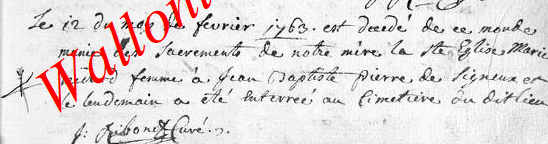 Le 12 du mois de fevrier 1763. est decedé de ce monde
munie des Sacrements de notre mère la Ste Eglise Marie
femme à Jean Baptiste pierre de Signeux et
le lendemain a été Enterreé au Cimetiere du dit lieu
j: Ribonet Curé.
Walloni